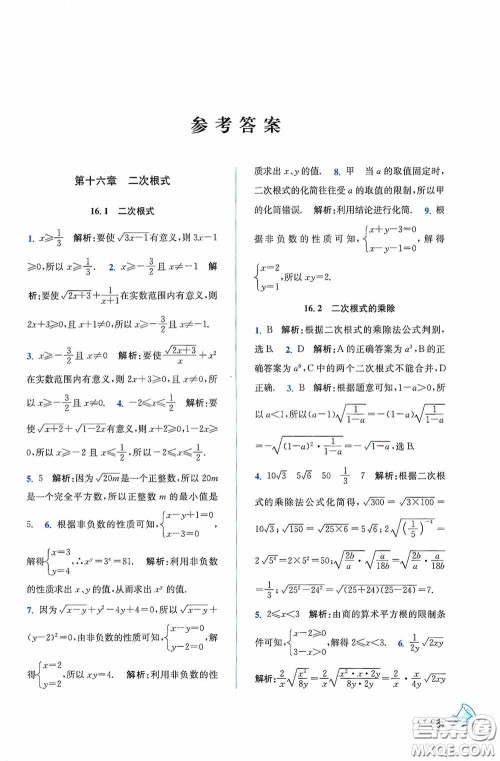 参考答案
第十六章 二次根式
16.1 二次根式
1. x≥1/3 解析:要使√(3x-1)有意义,则3x-1
≥0,所以x≥1/3. 2. x≥-3/2且x≠-1 解
析:要使√(2x+3)+1/(x+1)在实数范围内有意义,则
2x+3≥0,x+1≠0,所以x≥-3/2且x≠-1.
3. x≥-3/2且x≠0 解析:要使√(2x+3)/x+x²
在实数范围内有意义,则2x+3≥0,x≠0,所以
x≥-3/2且x≠0. 4. -2≤x≤1/2 解析:要使
√(x+2)+√(1-2x)有意义,则x+2≥0,1-2x≥0,所
以x≥-2且x≤1/2,所以-2≤x≤1/2.
5. 5 解析:因为√20m是一个正整数,所以20m
是一个完全平方数,所以正整数m的最小值是
5. 6. 根据非负数的性质可知,{x-y+1=0
解得{x=3, y=4. ∴x^y=3⁴=81. 解析:利用非负数
性质求出x、y的值,从而求出x^y的值.
7. 因为√(x-y)+y²-4y+4=0,所以√(x-y)+
(y-2)²=0,由非负数性质可知,{x-y=0, y-2=0, 解
得{x=2, y=2, 所以xy=4. 解析:利用非负数的性
质求出x、y的值. 8. 甲 当a的取值固定时,
二次根式的化简往往受a的取值的限制,所以甲
的化简错误. 解析:利用结论进行化简. 9. 根
据非负数的性质可知,{x+y-3=0 x-1=0, 解得
{x=1, y=2, 所以xy=2.
16.2 二次根式的乘除
1. B 解析:根据二次根式的乘除法公式判别,
选B. 2. D 解析:A的正确答案为a³,B的正确
答案为a⁶,C中的两个二次根式不能合并,D
正确. 3. B 解析:根据题意可知,1-a>0,所
以a<1,所以(a-1)√(1/(1-a))=-(1-a)√(1/(1-a))=
-√((1-a)²·1/(1-a))=-√(1-a),选B.
4. 10√3 5√6 50 1/3 7 解析:根据二次根
式的乘除法公式化简得,√300=√(3×100)=
10√3;√150=√(25×6)=5√6;2√((1/5)⁻⁴)
=2√5⁴=2×5²=50;√(2b/a)·√(a/18b)=√(2b/a·a/18b)=
1/3;√(25²-24²)=√((25+24)(25-24))=7.
5. 2≤x<3 解析:由商的算术平方根的限制条
件可知{x-2≥0 3-x>0, 所以2≤x<3. 6. 1/y√2xy